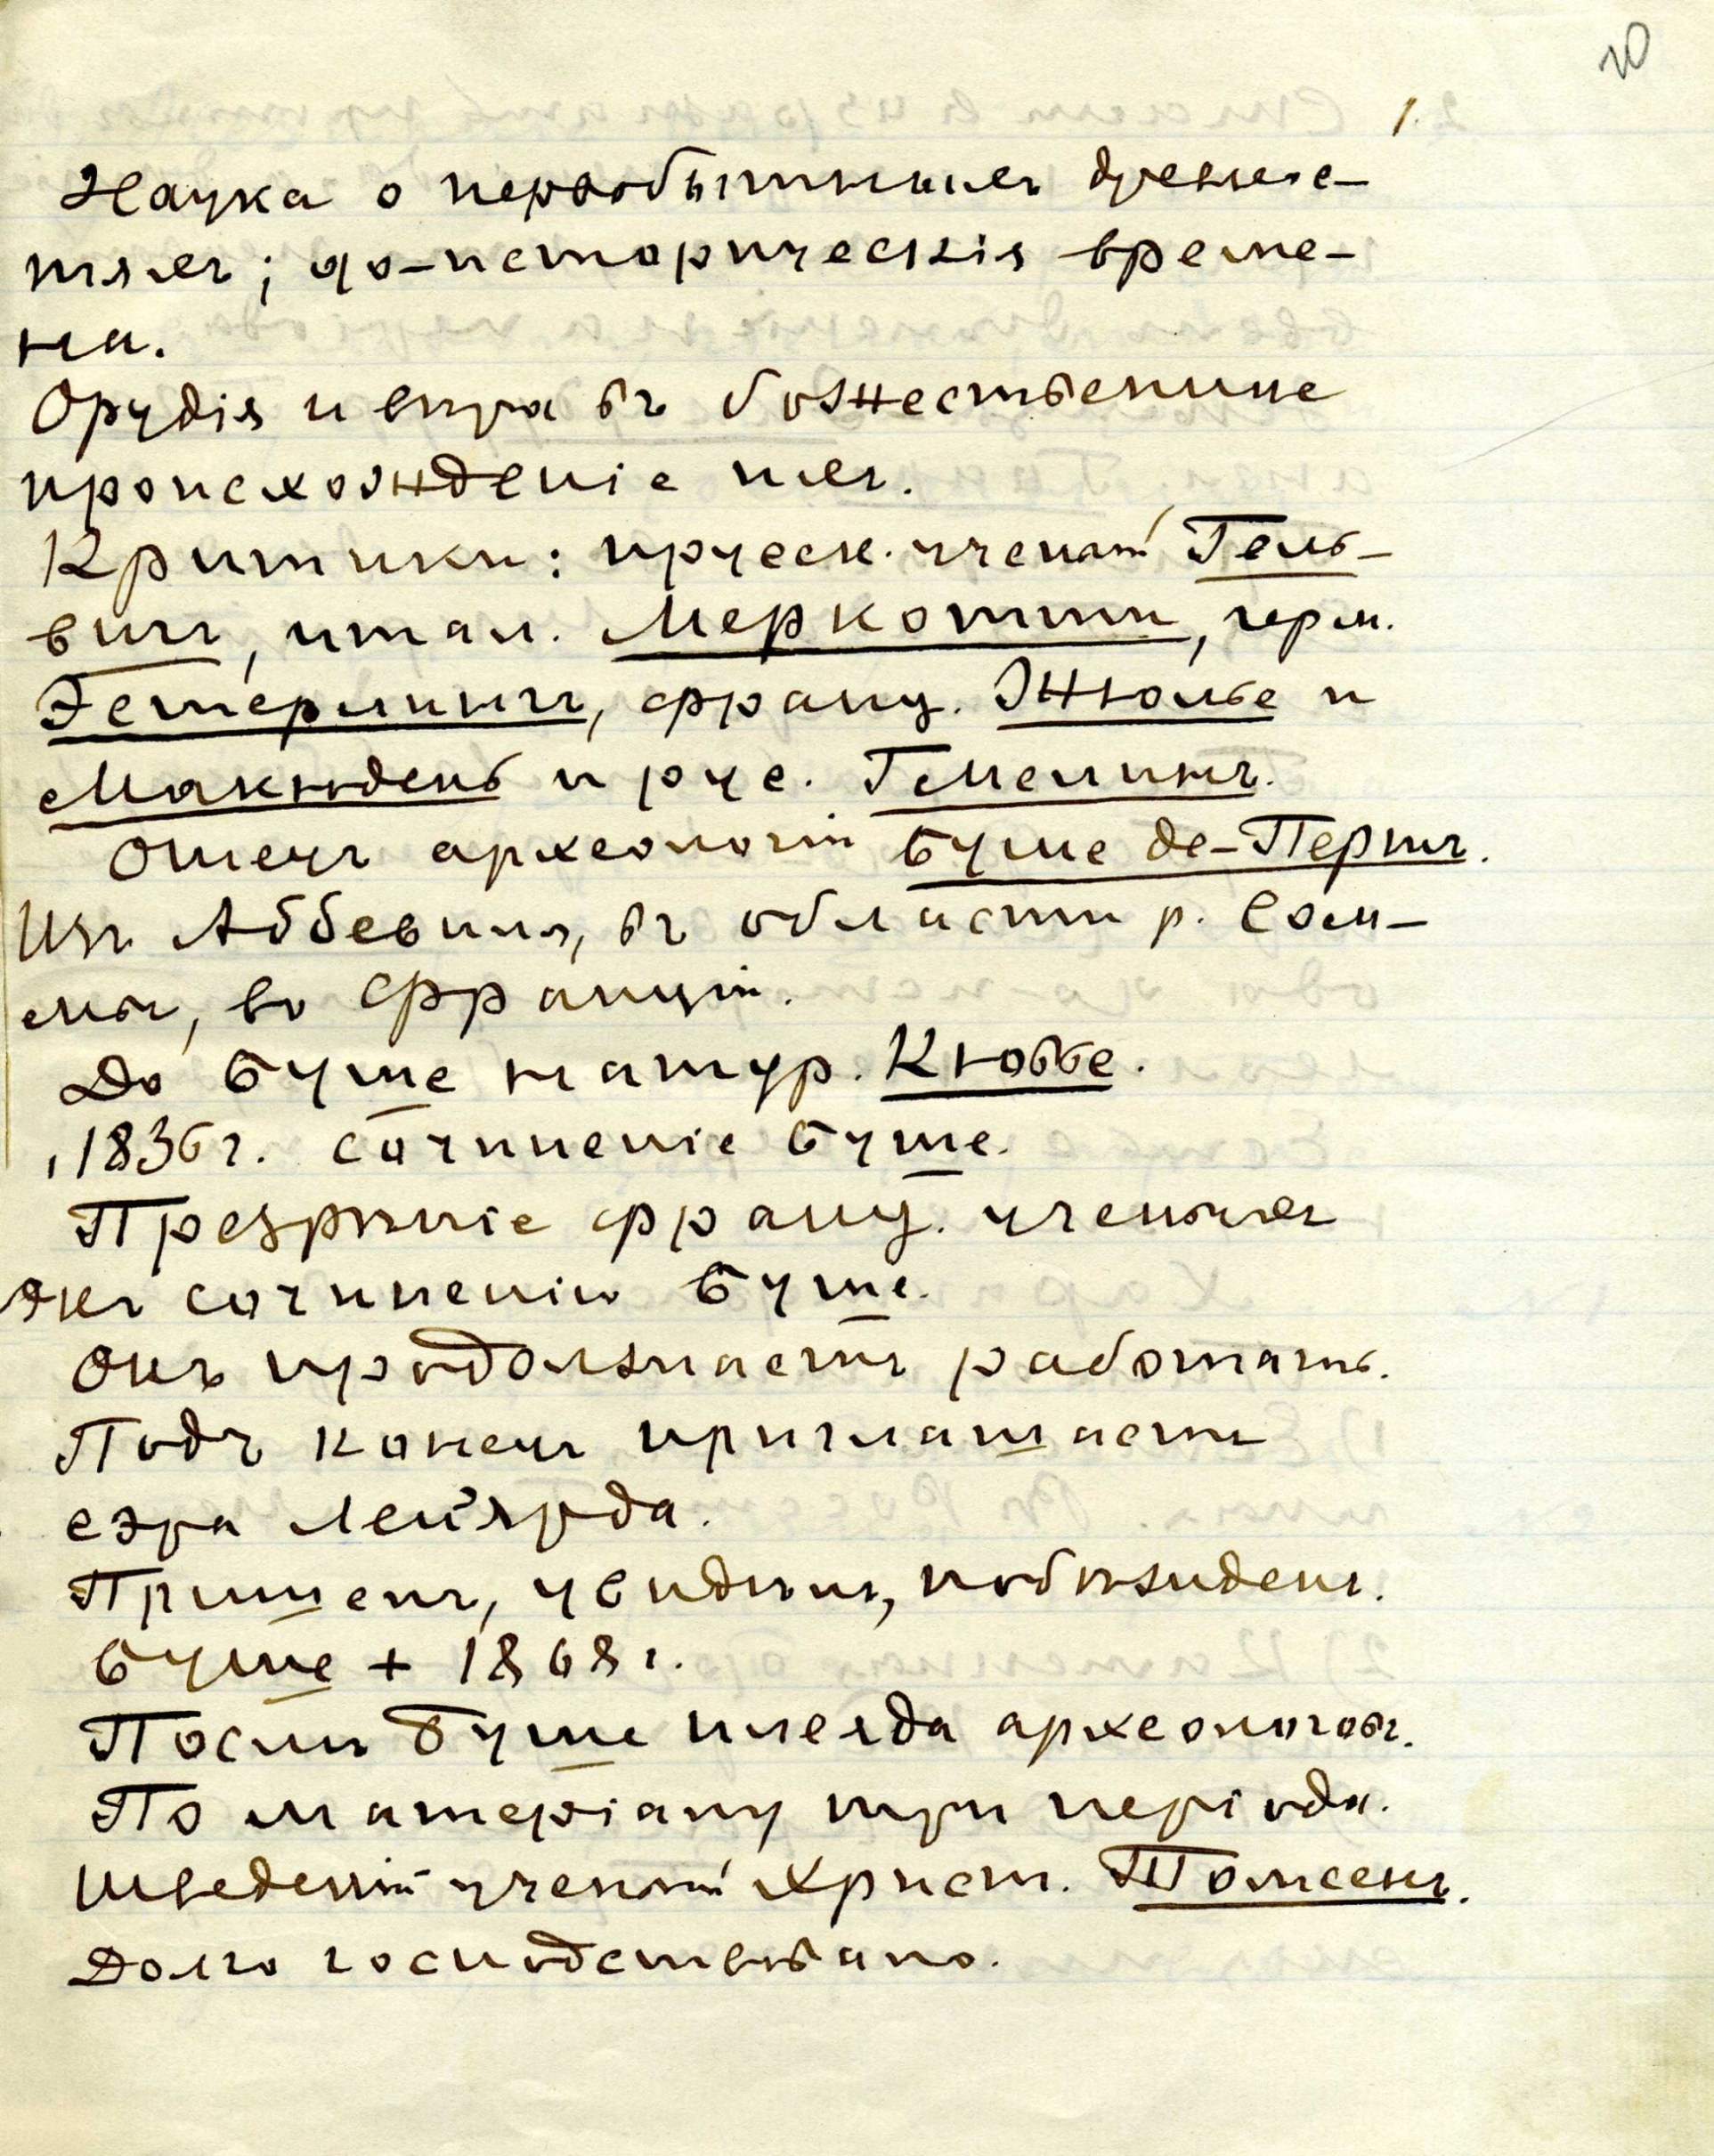 20
1.
Наука о первобытныхъ древнос-
тяхъ; до-историческія време-
на.
Орудія и вѣра въ божественное
происхожденіе ихъ.
Критики: прусск. ученый Гель-
вигъ, итал. Меркотти, герм.
Гетерлингъ, франц. Жюлье и
Макюдель и рус. Гмелинъ.
Отецъ археологіи Буше де-Пертъ.
Изъ Аббевиля, въ области р. Сом-
мы, во Франціи.
До Буше натур. Кювье.
1836 г. сочиненіе Буше.
Презрѣніе франц. ученыхъ
къ сочиненію Буше.
Онъ продолжаетъ работать.
Подъ конецъ приглашаетъ
сэра Лейярда.
Пришелъ, увидѣлъ, побѣжденъ.
Буше + 1868 г.
Послѣ Буше плеяда археологовъ.
По матеріалу три періода.
Шведскій ученый Христ. Томсенъ.
Долго господствовало.